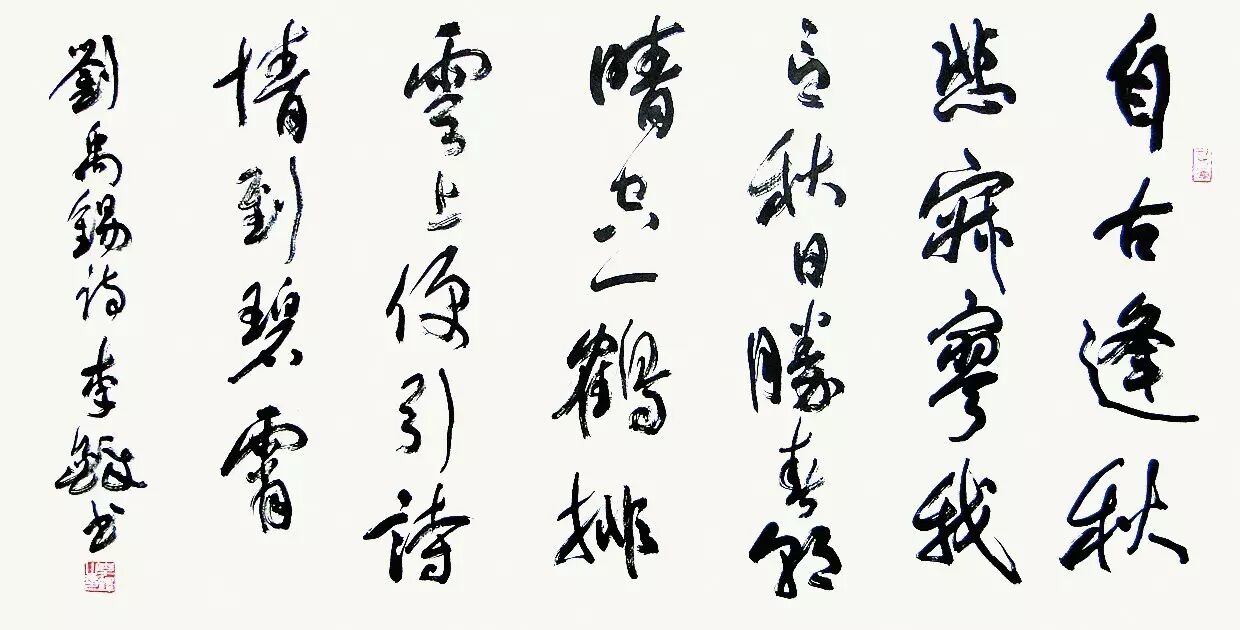 自古逢秋
悲寂寥我
言秋日勝春朝
晴空一鶴排
雲上便引詩
情到碧霄
劉禹錫詩李敏书